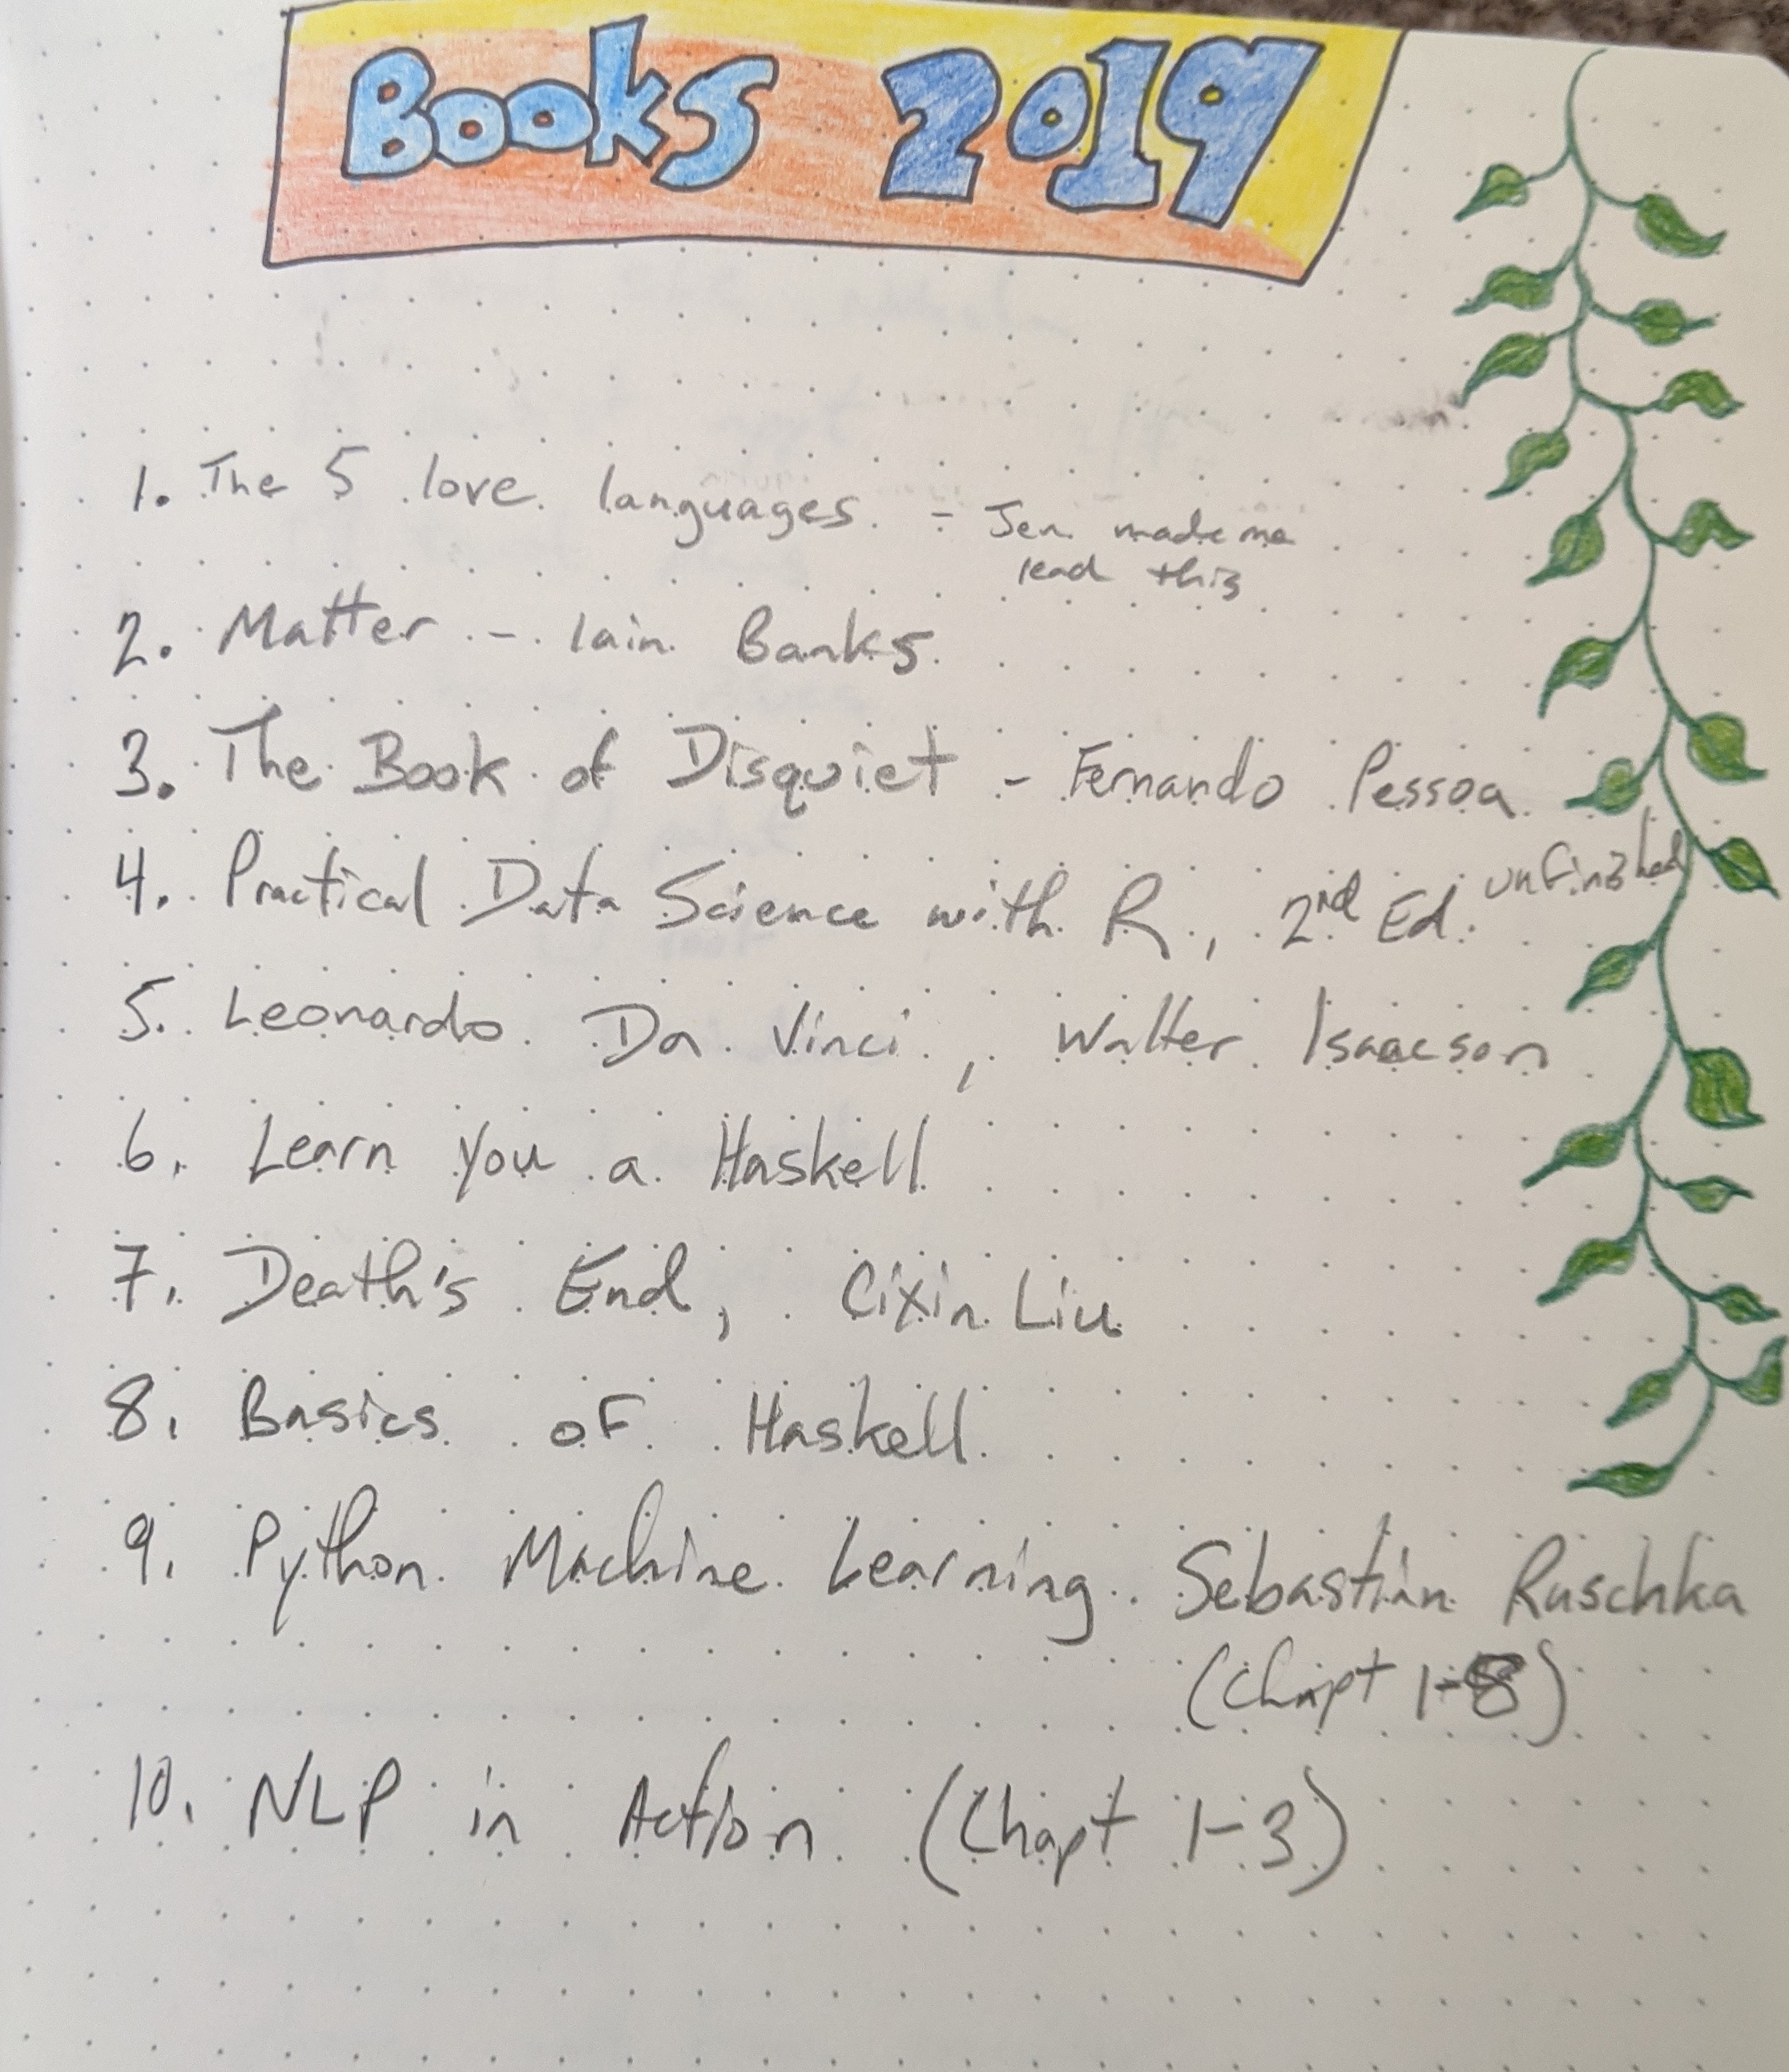 Books 2019
1. The 5 love languages - Jen made me
read this
2. Matter - Iain Banks
3. The Book of Disquiet - Fernando Pessoa
4. Practical Data Science with R, 2nd Ed. unfinished
5. Leonardo Da Vinci, Walter Isaacson
6. Learn You a Haskell
7. Death's End, Cixin Liu
8. Basics of Haskell
9. Python Machine Learning. Sebastian Raschka
(Chapt 1-8)
10. NLP in Action (Chapt 1-3)